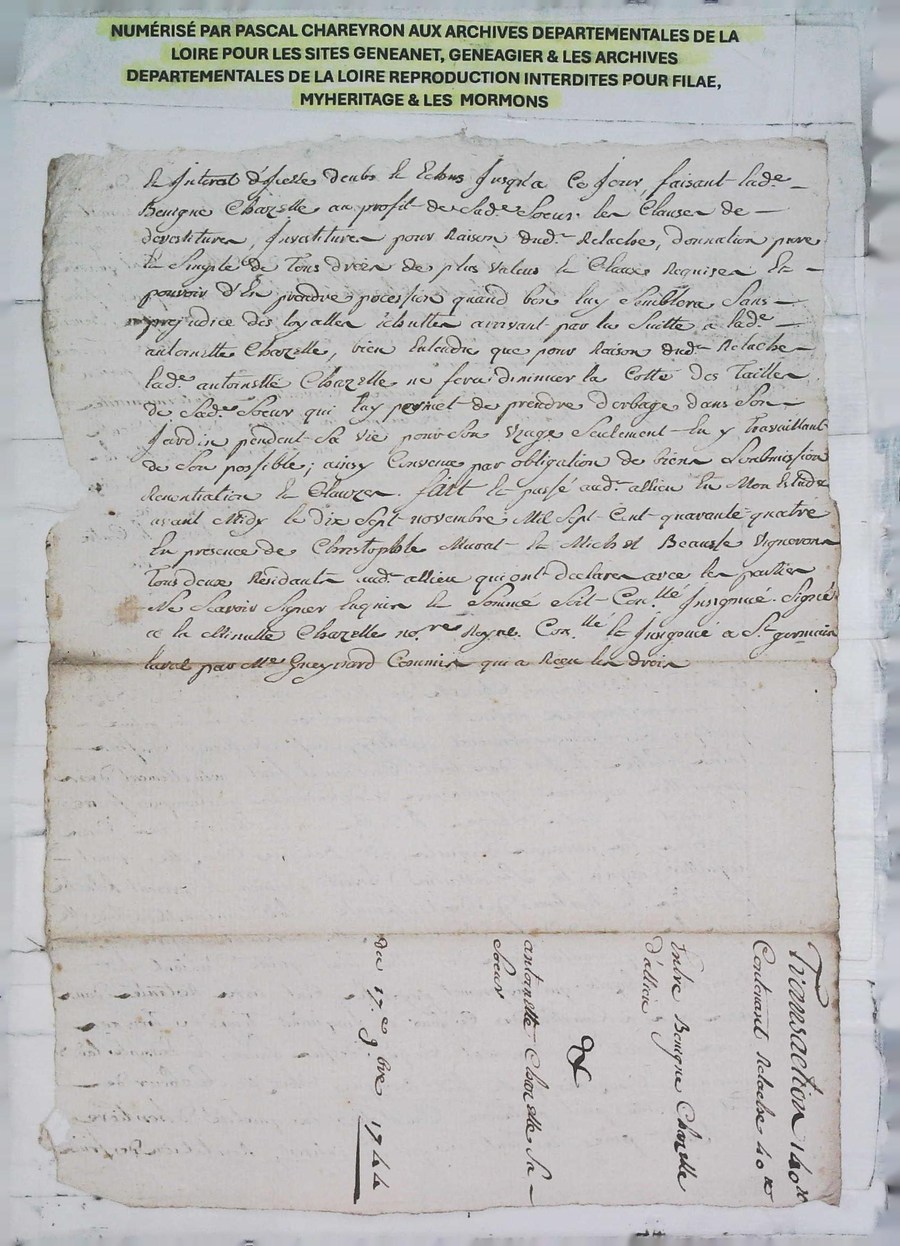 NUMÉRISÉ PAR PASCAL CHAREYRON AUX ARCHIVES DEPARTEMENTALES DE LA
LOIRE POUR LES SITES GENEANET, GENEAGIER & LES ARCHIVES
DEPARTEMENTALES DE LA LOIRE REPRODUCTION INTERDITES POUR FILAE,
MYHERITAGE & LES MORMONS
et Interest d'Icelle deubs et Echus Jusqu'a Ce Jour, faisant lad.e
Benigne Chazelle au profit de Sad.e Soeur les Clauses de
devestitures, Investitures pour Raison dud.t Relache, donnation pure
et Simple de Tous droits de plus valeur et Clauses Requises Et
pouvoir d'En prendre pocession quand bon luy Semblera Sans
prejudice des loyalles échuttes arrivant par la Suitte a lad.e
antoinette Chazelle, bien Entendu que pour Raison dud.t Relache
lad.e antoinette Chazelle ne fera diminuer la Cotte des Tailles
de Sad.e Soeur qui luy permet de prendre d'erbage dans Son
Jardin pendent Sa vie pour Son Uzage Seulement En y Travaillant
de Son possible; ainsy Convenu par obligation de biens Soubmission
Renontiation et Clauzes. fait et passé aud.t allieu En Mon Etude
avant Midy le dix Sept novembre Mil Sept Cent quarante quatre
En presence de Christophle Murat et Michel Beausse Vignerons
Tous deux Residants aud.t allieu qui ont declarés avec les parties
Ne Scavoir Signer Enquis et Sommé Soit Con.llé Insignué. Signé
a la Minutte Chazelle no.re Royal. Con.llé et Insignué a S.t germain
laval par M.e Gueynard Commis qui a Receu les droits
Transaction 140 #
Contenant Relache 40 #
Entre Benigne Chazelle
d'allieu
&
antoinette Chazelle Sa
Soeur
du 17.e 9.bre 1744